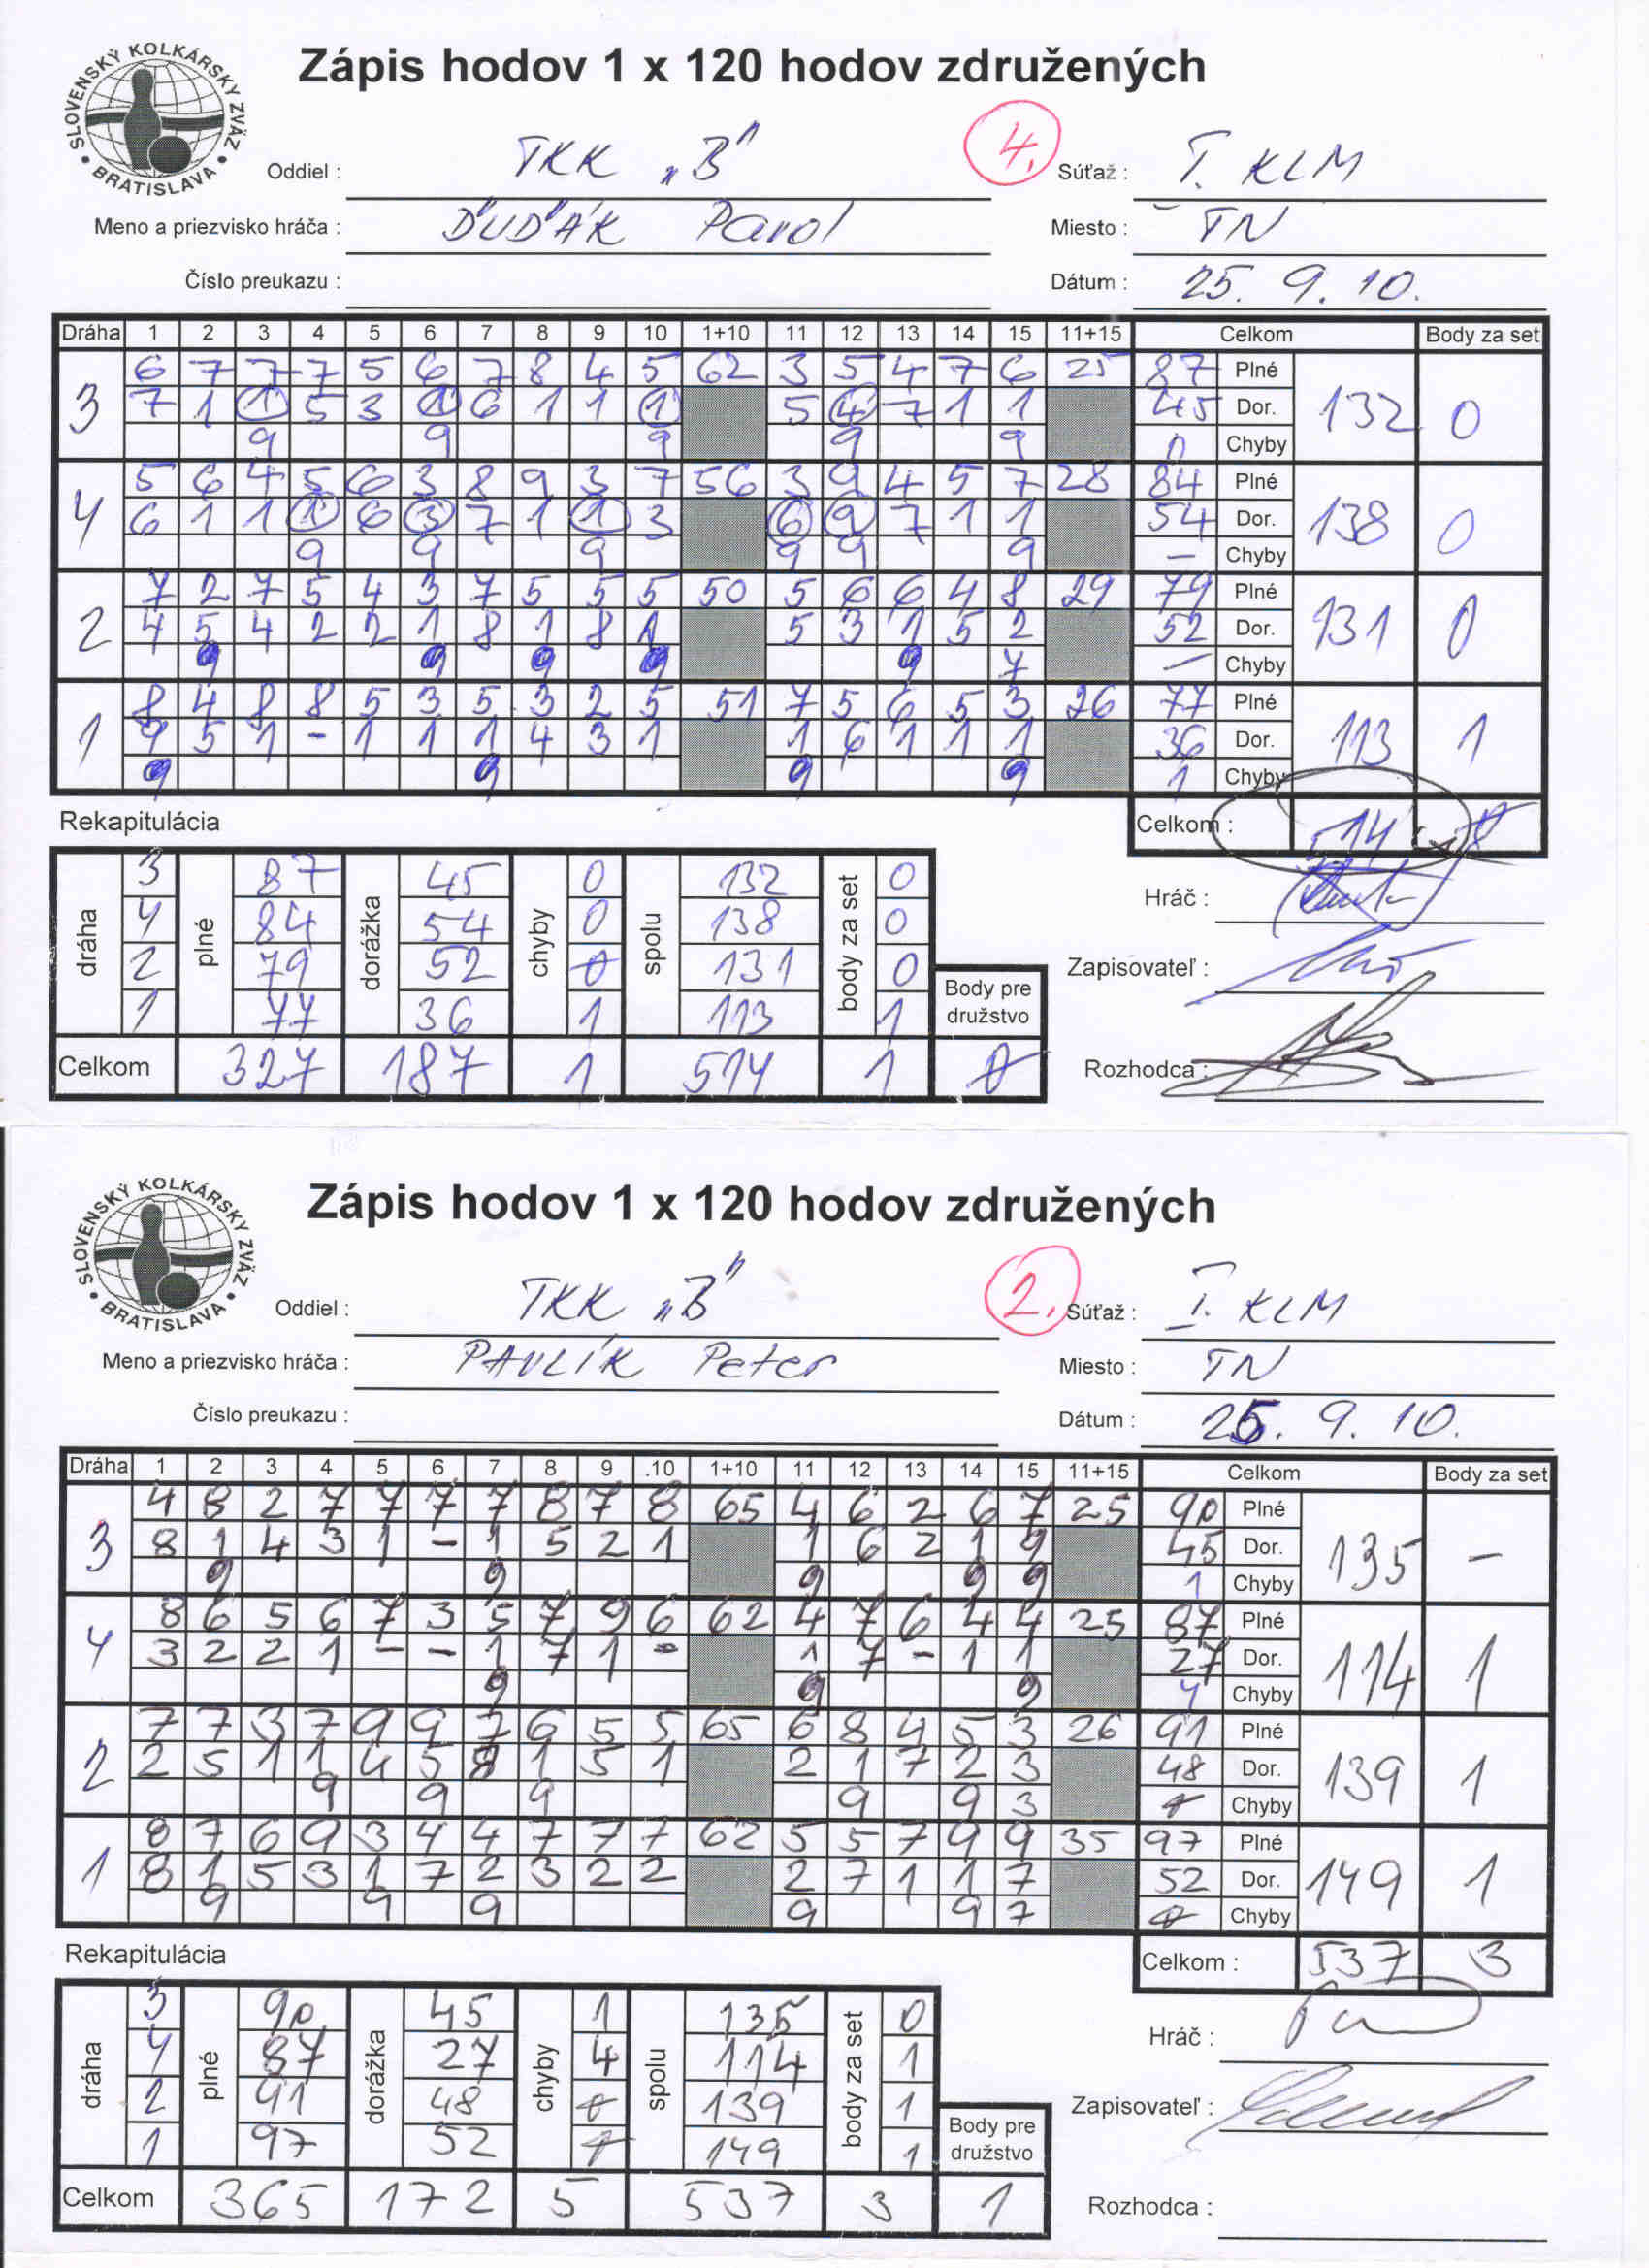 SLOVENSKÝ KOLKÁRSKY ZVÄZ • BRATISLAVA •
Zápis hodov 1 x 120 hodov združených
4.
Oddiel : TKK „B" Súťaž : I. KLM
Meno a priezvisko hráča : ĎUĎÁK Pavol Miesto : TN
Číslo preukazu : Dátum : 25. 9. 10.
Dráha 1 2 3 4 5 6 7 8 9 10 1+10 11 12 13 14 15 11+15 Celkom Body za set
6 7 7 7 5 6 7 8 4 5 62 3 5 4 7 6 25 87 Plné
3 7 1 1 5 3 1 6 1 1 1 5 4 7 1 1 45 Dor. 132 0
9 9 9 9 9 0 Chyby
5 6 4 5 6 3 8 9 3 7 56 3 9 4 5 7 28 84 Plné
4 6 1 1 1 6 3 7 1 1 3 6 9 7 1 1 54 Dor. 138 0
9 9 9 9 9 9 – Chyby
7 2 7 5 4 3 7 5 5 5 50 5 6 6 4 8 29 79 Plné
2 4 5 4 2 2 1 8 1 8 1 5 3 1 5 2 52 Dor. 131 0
9 9 9 9 9 7 – Chyby
8 4 8 8 5 3 5 3 2 5 51 7 5 6 5 3 26 77 Plné
1 9 5 1 - 1 1 1 4 3 1 1 6 1 1 1 36 Dor. 113 1
9 9 9 9 1 Chyby
Rekapitulácia Celkom : 514 0
dráha 3 plné 87 dorážka 45 chyby 0 spolu 132 body za set 0
4 84 54 0 138 0
2 79 52 0 131 0
1 77 36 1 113 1
Body pre družstvo
Celkom 327 187 1 514 1 0
Hráč :
Zapisovateľ :
Rozhodca :
SLOVENSKÝ KOLKÁRSKY ZVÄZ • BRATISLAVA •
Zápis hodov 1 x 120 hodov združených
2.
Oddiel : TKK „B" Súťaž : I. KLM
Meno a priezvisko hráča : PAVLÍK Peter Miesto : TN
Číslo preukazu : Dátum : 25. 9. 10.
Dráha 1 2 3 4 5 6 7 8 9 10 1+10 11 12 13 14 15 11+15 Celkom Body za set
4 8 2 7 7 7 7 8 7 8 65 4 6 2 6 7 25 90 Plné
3 8 1 4 3 1 - 1 5 2 1 1 6 2 1 9 45 Dor. 135 –
9 9 9 9 9 1 Chyby
8 6 5 6 7 3 5 7 9 6 62 4 7 6 4 4 25 87 Plné
4 3 2 2 1 - - 1 7 1 - 1 7 - 1 1 27 Dor. 114 1
9 9 9 4 Chyby
7 7 3 7 9 9 7 6 5 5 65 6 8 4 5 3 26 91 Plné
2 2 5 1 1 4 5 8 1 5 1 2 1 7 2 3 48 Dor. 139 1
9 9 9 9 9 3 0 Chyby
8 7 6 9 3 4 4 7 7 7 62 5 5 7 9 9 35 97 Plné
1 8 1 5 3 1 7 2 3 2 2 2 7 1 1 7 52 Dor. 149 1
9 9 9 9 9 7 0 Chyby
Rekapitulácia Celkom : 537 3
dráha 3 plné 90 dorážka 45 chyby 1 spolu 135 body za set 0
4 87 27 4 114 1
2 91 48 0 139 1
1 97 52 0 149 1
Body pre družstvo
Celkom 365 172 5 537 3 1
Hráč :
Zapisovateľ :
Rozhodca :